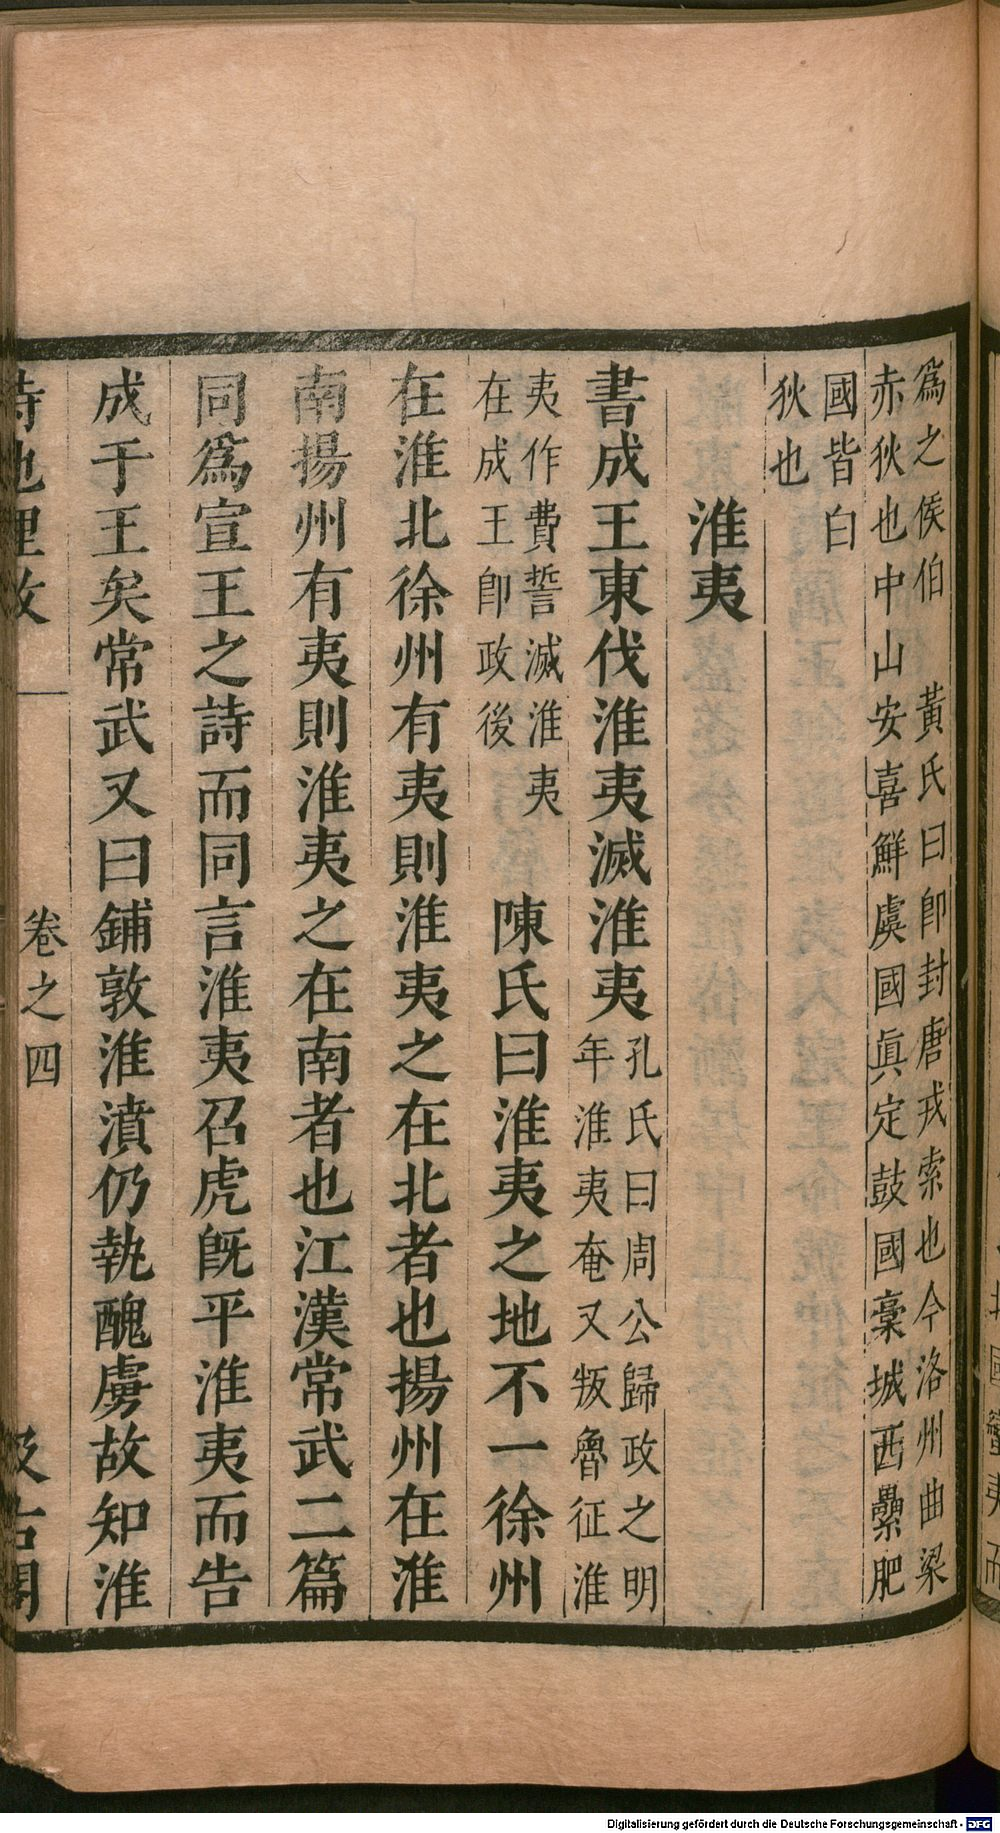 爲之侯伯　黃氏曰卽封唐戎索也今洛州曲梁
赤狄也中山安喜鮮虞國眞定鼓國槀城西纍肥
國皆白
狄也
淮夷
書成王東伐淮夷滅淮夷
孔氏曰周公歸政之明
年淮夷奄又叛魯征淮
夷作費誓滅淮夷
在成王卽政後
陳氏曰淮夷之地不一徐州
在淮北徐州有夷則淮夷之在北者也揚州在淮
南揚州有夷則淮夷之在南者也江漢常武二篇
同爲宣王之詩而同言淮夷召虎旣平淮夷而告
成于王矣常武又曰鋪敦淮濆仍執醜虜故知淮
詩地理攷
卷之四
汲古閣
國蠻夷而
Digitalisierung gefördert durch die Deutsche Forschungsgemeinschaft - DFG